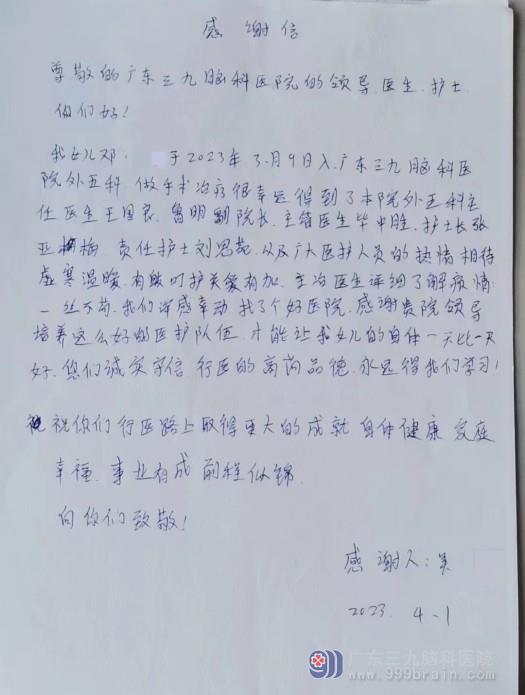 感谢信
尊敬的广东三九脑科医院的领导医生、护士
你们好！
我女儿邓 于2023年3月9日入广东三九脑科医
院外五科 做手术治疗很幸运得到了本院外五科主
任医生王国良、鲁明副院长、主管医生毕中胜、护士长张
亚梅、责任护士刘思 以及广大医护人员的热情相待
虚寒温暖 有 叮 护关爱有加、主治医生详细了解病情
一丝不苟、我们深感幸动 找了个好医院、感谢贵院领导
培养这么好的医护队伍、才能让我女儿的身体一天比一天
好、您们诚实守信 行医的高尚品德、永远得我们学习！
祝你们行医路上取得更大的成就 身体健康 家庭
幸福、事业有成 前程似锦
向你们致敬！
感谢人：吴
2023. 4-1
999
广东三九脑科医院
www.999brain.com